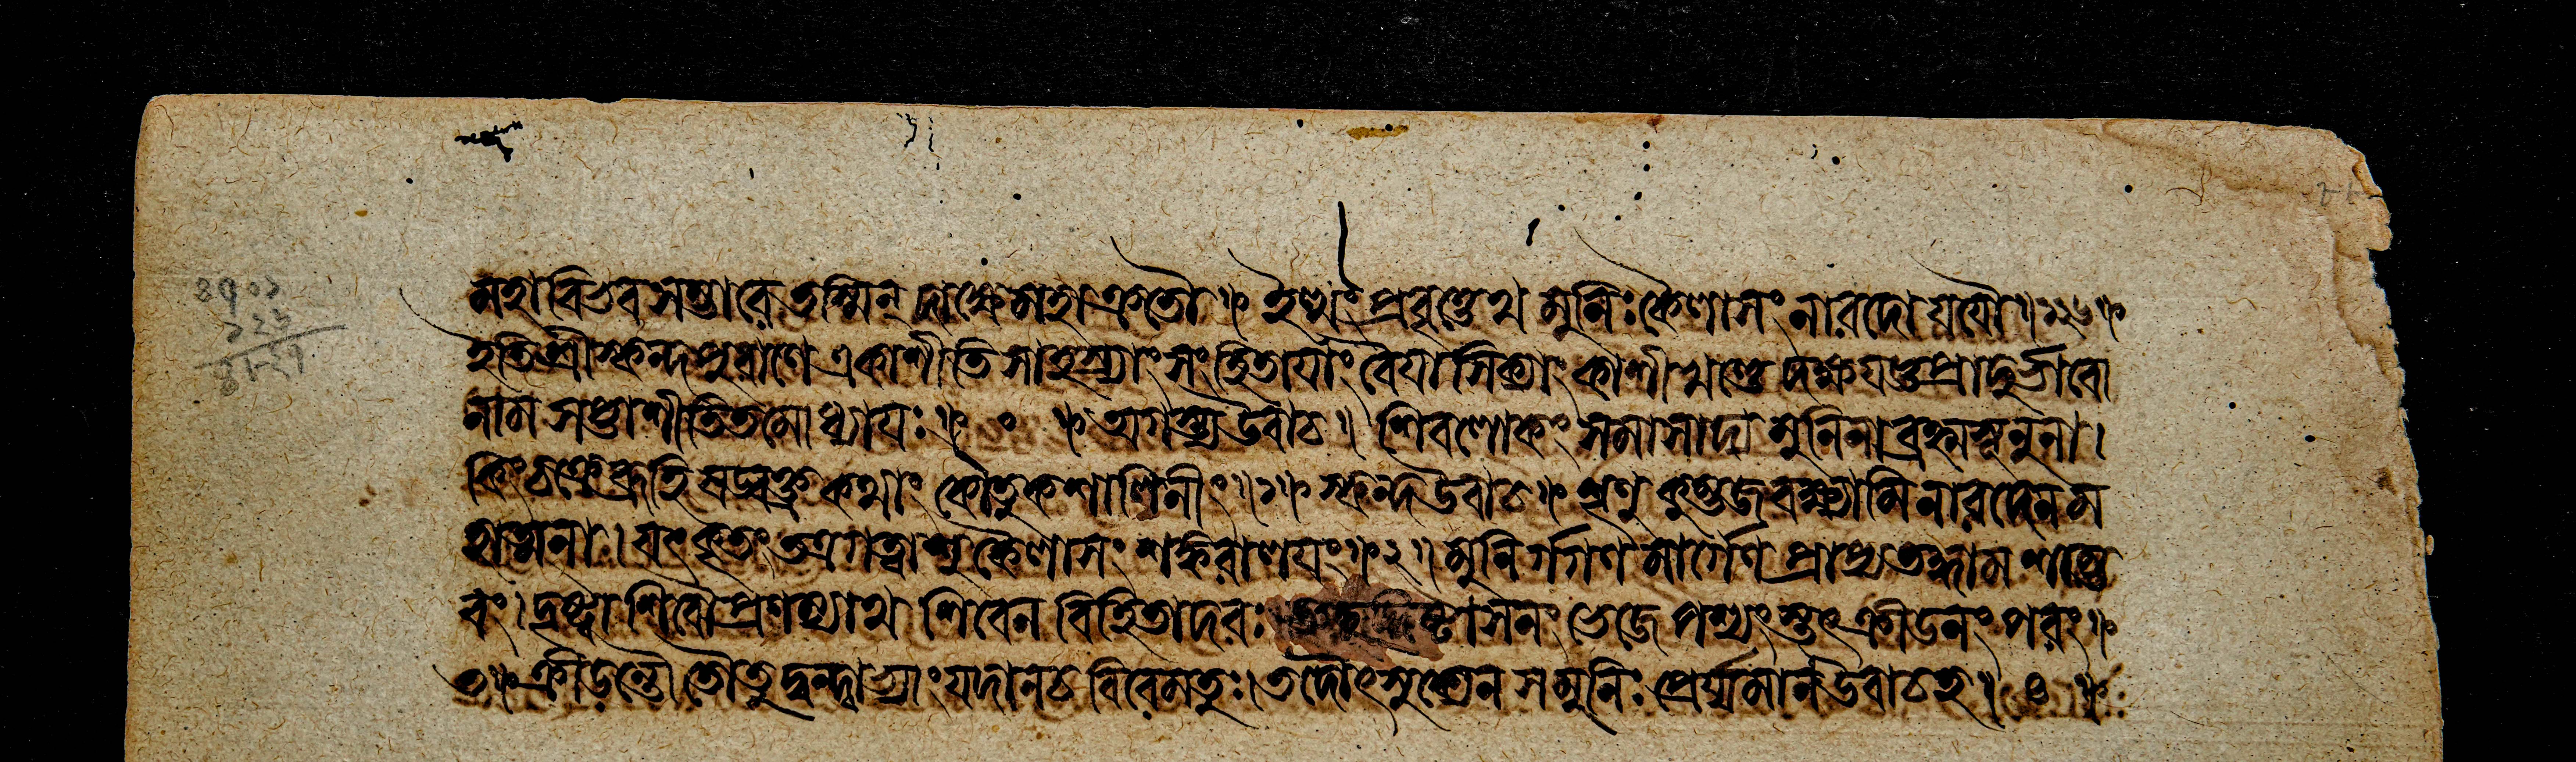 মহাবিভবসম্ভারে তস্মিন্ দাক্ষে মহাক্রতৌ॥ ইত্থং প্রবৃত্তেথ মুনিঃ কৈলাসং নারদো যযৌ॥১১৬॥
ইতি শ্রীস্কন্দপুরাণে একাশীতিসাহস্র্যাং সংহিতাযাং বৈযাসিক্যাং কাশীখণ্ডে দক্ষযজ্ঞপ্রাদুর্ভাবো
নাম সপ্তাশীতিতমোধ্যাযঃ॥ ০ ॥ অগস্ত্য উবাচ॥ শিবলোকং সমাসাদ্য মুনিনা ব্রহ্মসূনুনা।
কিং চক্রে ব্রূহি ষড্বক্ত্র কথাং কৌতুকশালিনীং॥১॥ স্কন্দ উবাচ॥ শৃণু কুম্ভজ বক্ষ্যামি নারদেন ম
হাত্মনা। যৎকৃতং তত্র গত্বাশু কৈলাসং শঙ্করালযং॥২॥ মুনির্গগণমার্গেণ প্রাপ্য তদ্ধাম শাম্ভ
বং। দৃষ্ট্বা শিবৌ প্রণম্যাথ শিবেন বিহিতাদরঃ তদুদ্দিষ্টাসনং ভেজে পশ্যংস্তৎ ক্রীডনং পরং॥
৩॥ ক্রীডন্তৌ তৌ তু দ্বন্দ্বাভ্যাং যদা ন চ বিরেমতুঃ। তদৌৎসুক্যেন স মুনিঃ প্রের্যমান উবাচ হ॥ ৪ ॥
3901